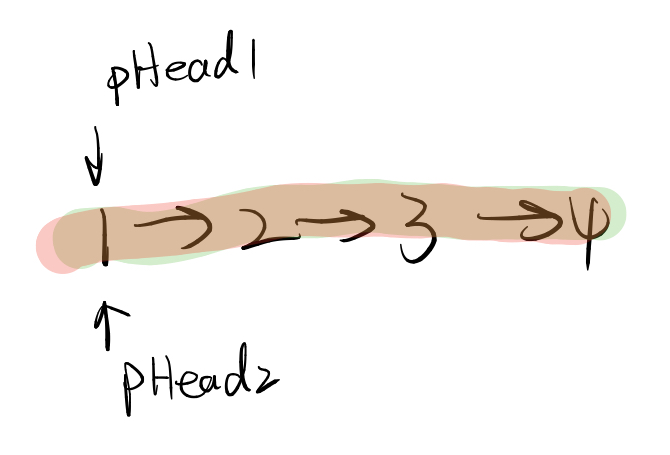 pHead1
1 → 2 → 3 → 4
pHead2